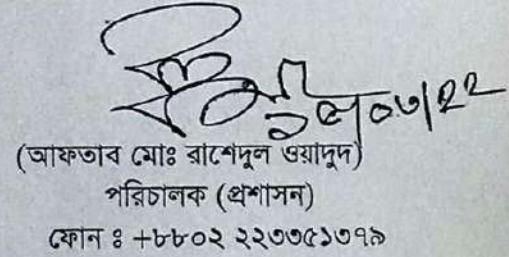 (আফতাব মোঃ রাশেদুল ওয়াদুদ)
পরিচালক (প্রশাসন)
ফোন ঃ +৮৮০২ ২২৩৩৫১৩৭৯